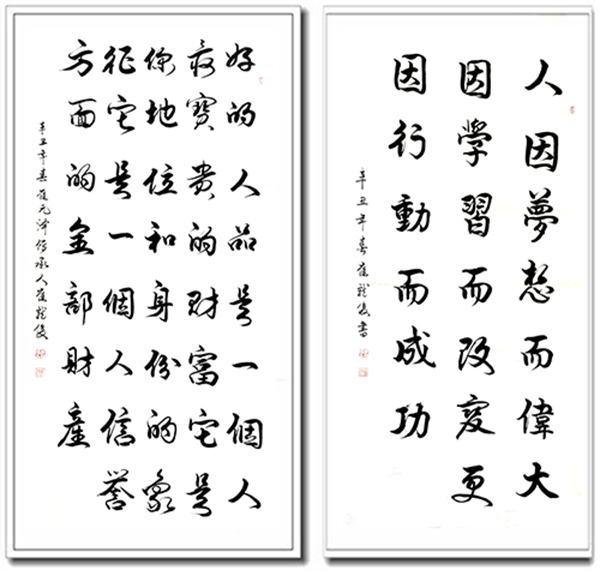 好的人品是一個人
最寶貴的财富它是
你地位和身份的象
征它是一個人信誉
方面的全部财產
辛丑年春崔元泽传承人崔龍俊
人因夢想而偉大
因學習而改变更
因行動而成功
辛丑年春崔龍俊書